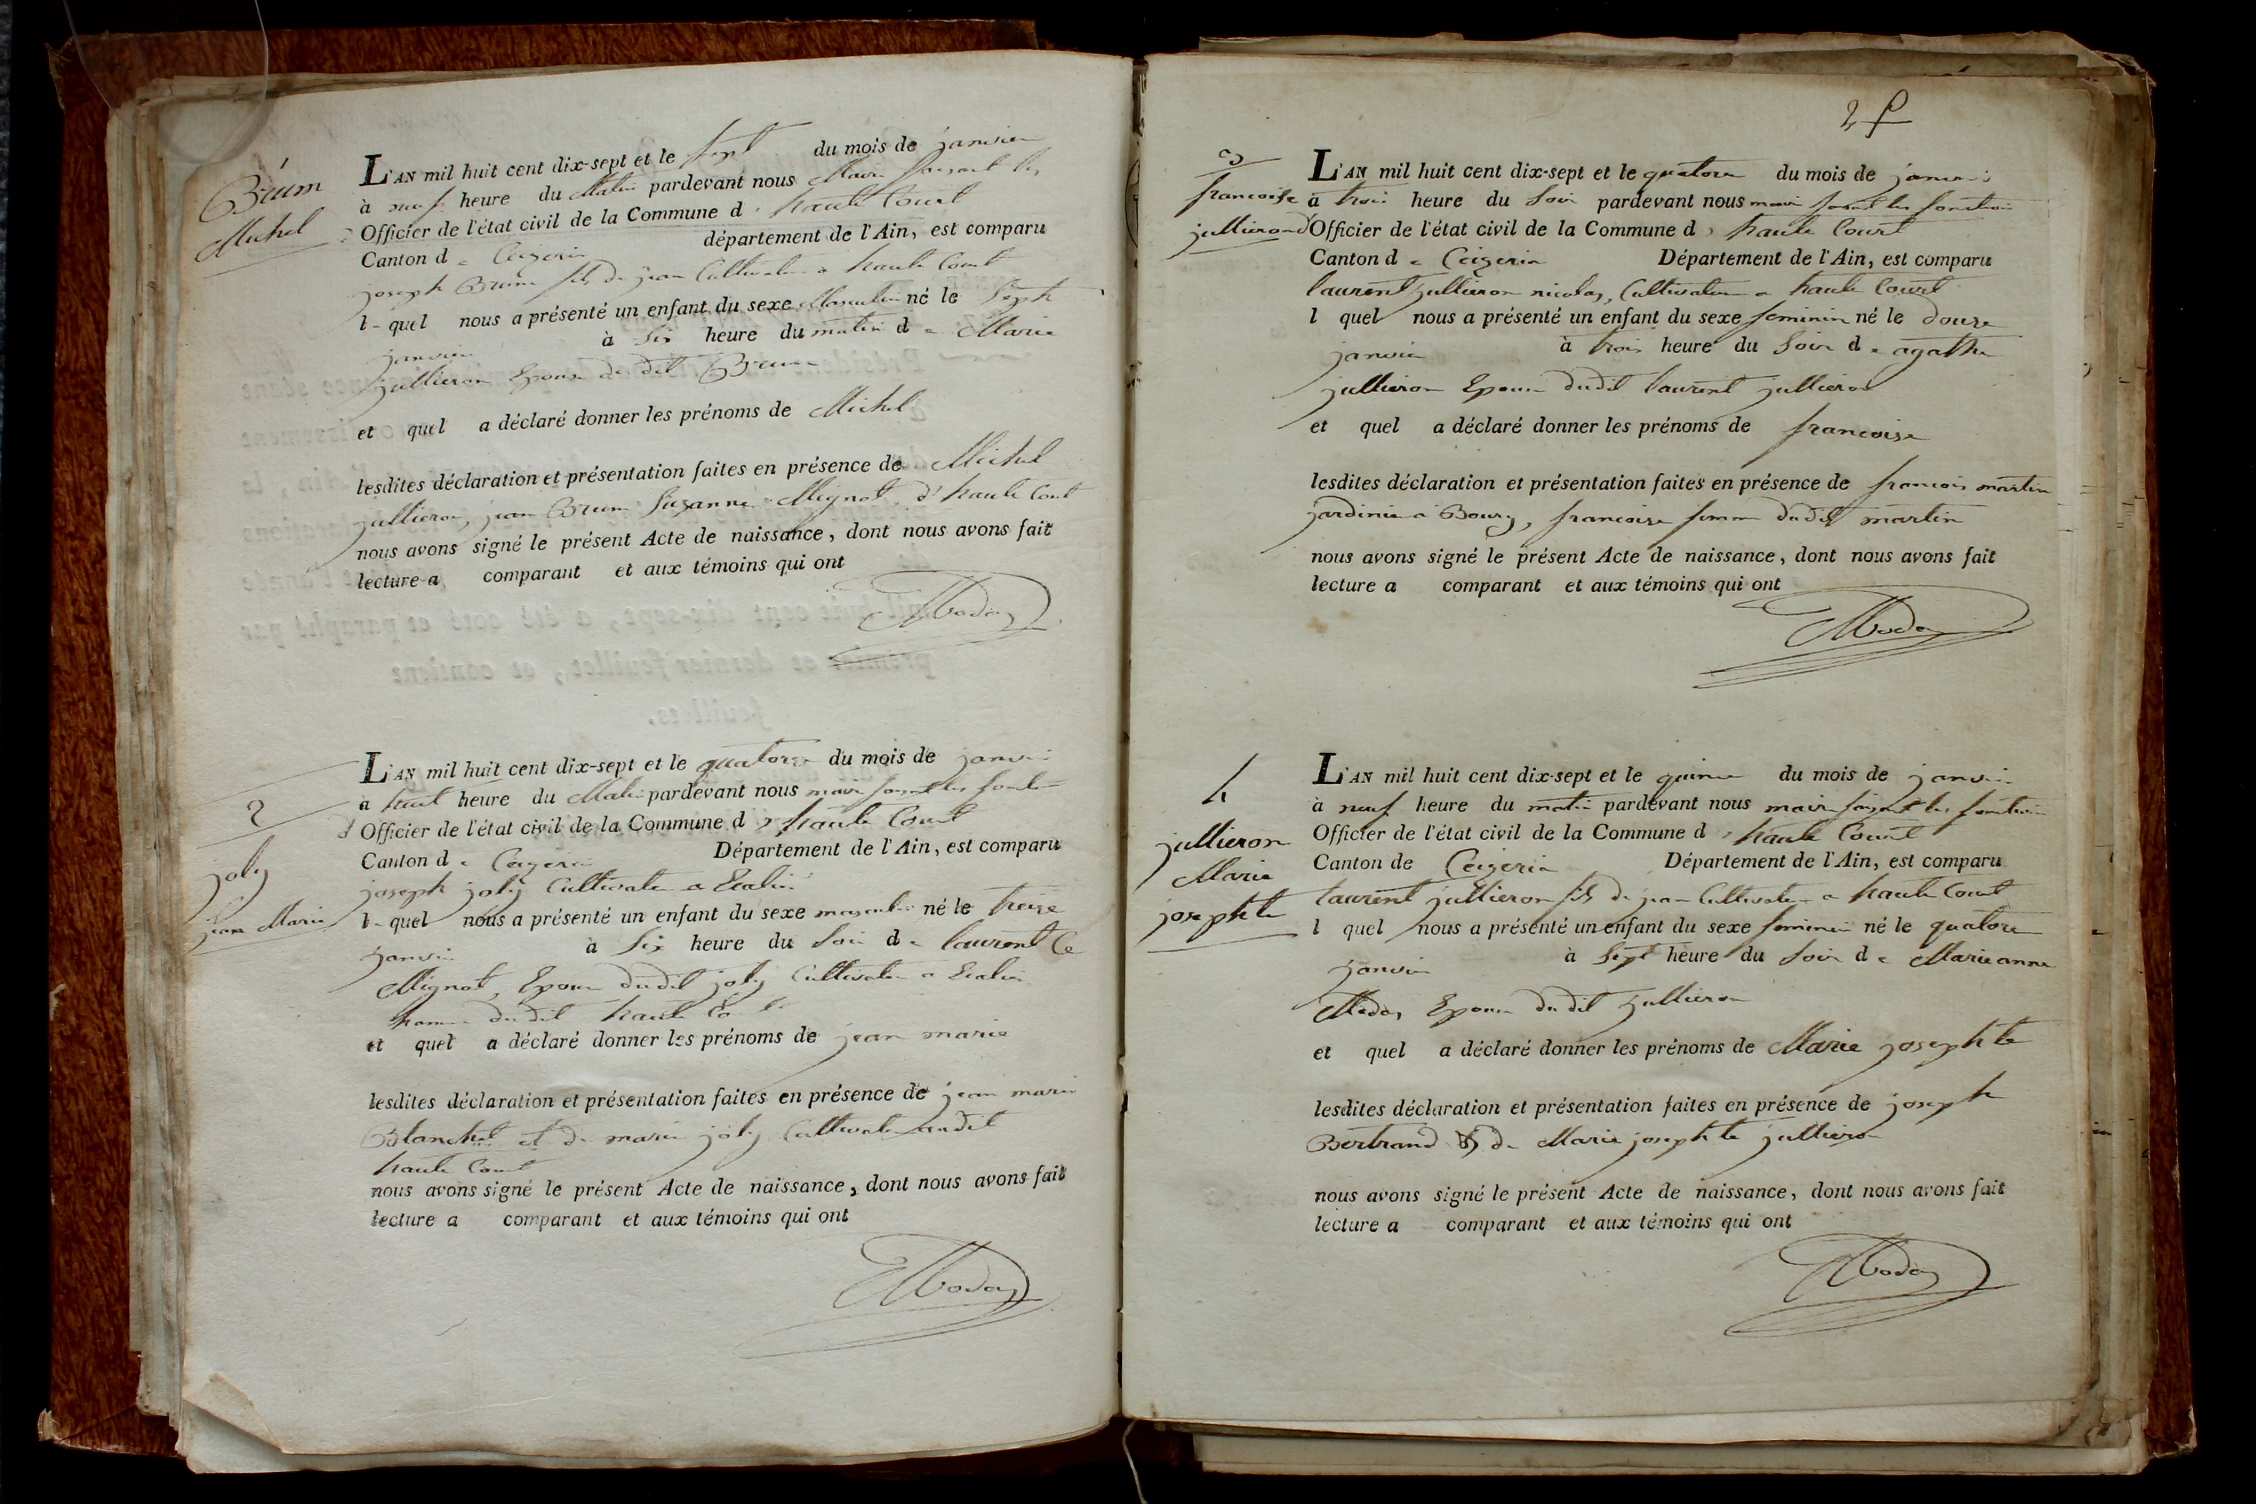 1
Brun
Michel
L'AN mil huit cent dix-sept et le sept du mois de janvier
à neuf heure du Matin pardevant nous Maire faisant les
Officier de l'état civil de la Commune d haute Court
Canton de Ceizeria département de l'Ain, est comparu
joseph Brun fils de jean Cultivateur a haute Court
l quel nous a présenté un enfant du sexe Masculin né le Sept
janvier à Six heure du matin de Marie
jullieron Epouse du dit Brun
et quel a déclaré donner les prénoms de Michel
lesdites déclaration et présentation faites en présence de Michel
jullieron, jean Brun Suzanne Mignot, d'haute Court
nous avons signé le présent Acte de naissance, dont nous avons fait
lecture a comparant et aux témoins qui ont
2
joly
jean Marie
L'AN mil huit cent dix-sept et le quatorze du mois de janvier
à huit heure du Matin pardevant nous maire faisant les
Officier de l'état civil de la Commune d haute Court
Canton de Ceizeria Département de l'Ain, est comparu
joseph joly Cultivateur a
l quel nous a présenté un enfant du sexe masculin né le treize
janvier à Six heure du Soir de laurent Ce
Mignot, Epouse dudit joly Cultivateur a
hameau dudit haute Court
et quel a déclaré donner les prénoms de jean marie
lesdites déclaration et présentation faites en présence de jean marie
Blanchet et de marie joly Cultivateur audit
haute Court
nous avons signé le présent Acte de naissance, dont nous avons fait
lecture a comparant et aux témoins qui ont
2
3
francoise
jullieron
L'AN mil huit cent dix-sept et le quatorze du mois de janvier
à trois heure du Soir pardevant nous maire faisant les fonctions
Officier de l'état civil de la Commune d haute Court
Canton de Ceizeria Département de l'Ain, est comparu
laurent jullieron nicolas, Cultivateur a haute Court
l quel nous a présenté un enfant du sexe feminin né le douze
janvier à trois heure du Soir de agathe
jullieron Epouse dudit laurent jullieron
et quel a déclaré donner les prénoms de francoise
lesdites déclaration et présentation faites en présence de francois martin
jardinier a Bourg, francoise femme dudit martin
nous avons signé le présent Acte de naissance, dont nous avons fait
lecture a comparant et aux témoins qui ont
4
jullieron
Marie
josephte
L'AN mil huit cent dix-sept et le quinze du mois de janvier
à neuf heure du matin pardevant nous maire faisant les fonctions
Officier de l'état civil de la Commune d haute Court
Canton de Ceizeria Département de l'Ain, est comparu
laurent jullieron fils de jean Cultivateur a haute Court
l quel nous a présenté un enfant du sexe feminin né le quatorze
janvier à Sept heure du Soir de Marieanne
Modas Epouse du dit jullieron
et quel a déclaré donner les prénoms de Marie josephte
lesdites déclaration et présentation faites en présence de joseph
Bertrand & de Marie josephte jullieron
nous avons signé le présent Acte de naissance, dont nous avons fait
lecture a comparant et aux témoins qui ont